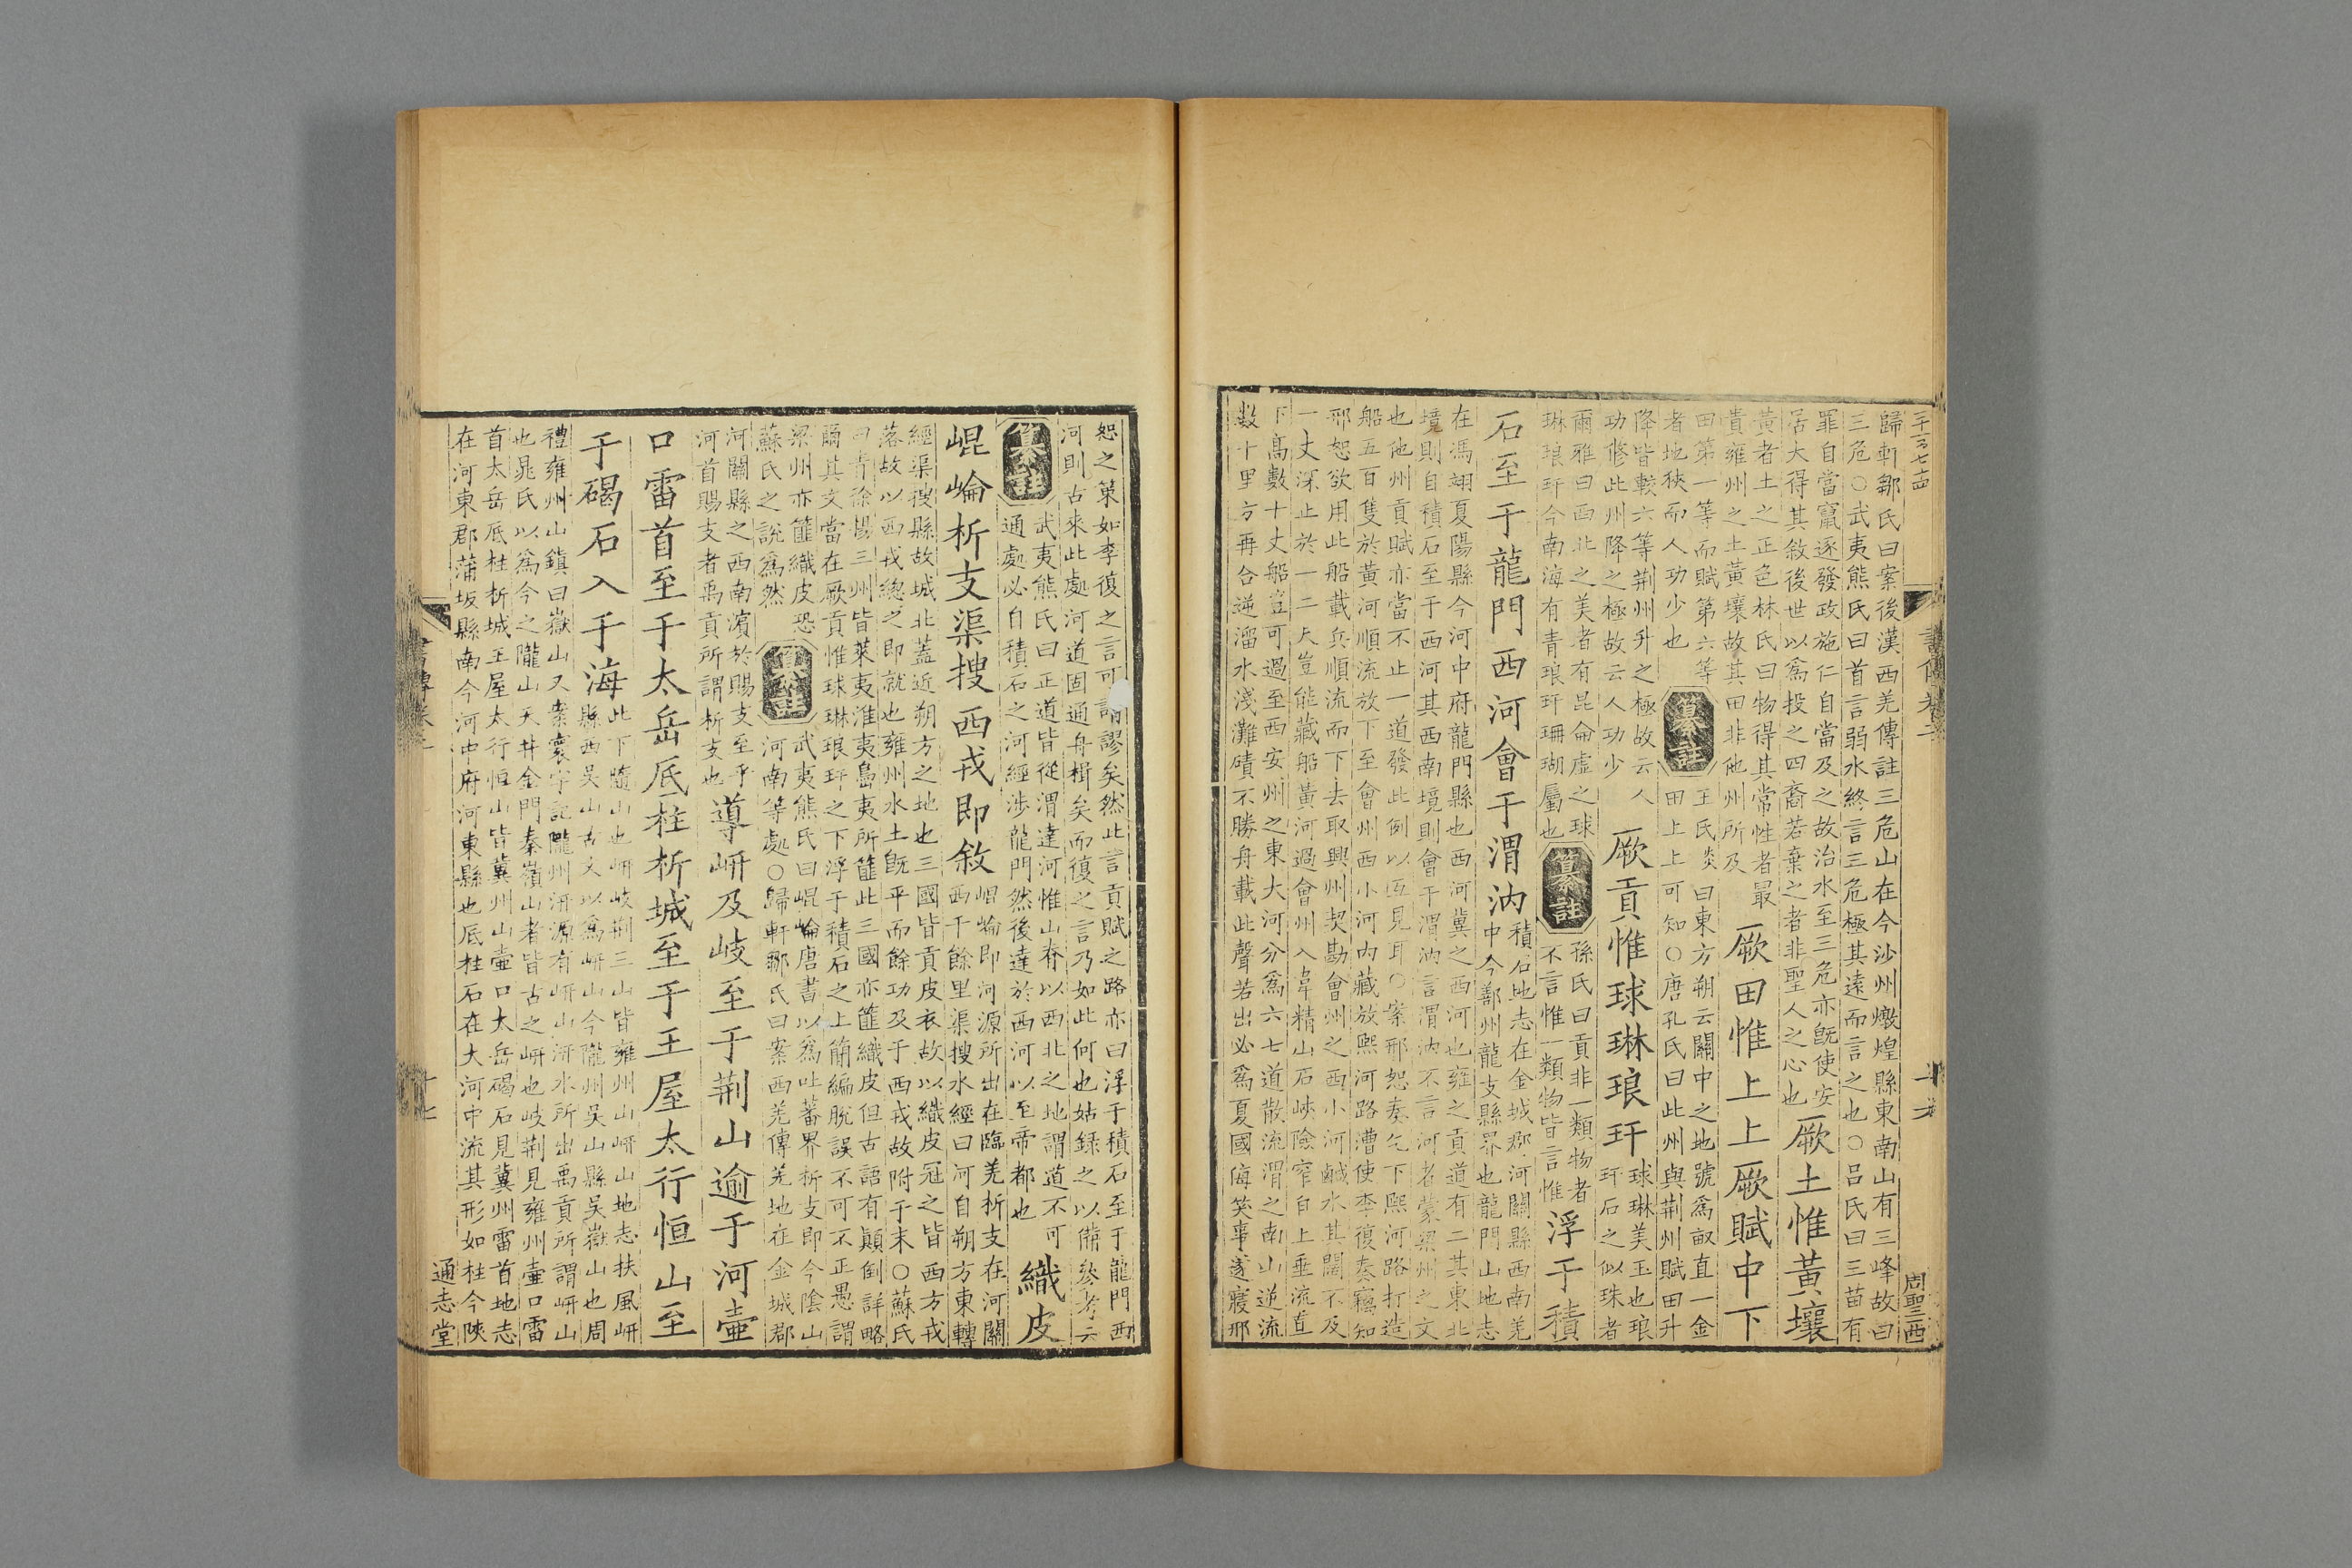 書傳卷二
周聖西
歸軒鄒氏曰案後漢西羌傳註三危山在今沙州燉煌縣東南山有三峰故曰
三危○武夷熊氏曰首言弱水終言三危極其遠而言之也○呂氏曰三苗有
罪自當竄逐發政施仁自當及之故治水至三危亦旣使安
居大得其敘後世以爲投之四裔若棄之者非聖人之心也
厥土惟黃壤
黃者土之正色林氏曰物得其常性者最
貴雍州之土黃壤故其田非他州所及
厥田惟上上厥賦中下
田第一等而賦第六等
者地狹而人功少也
纂註
王氏炎曰東方朔云關中之地號爲畝直一金
田上上可知○唐孔氏曰此州與荆州賦田升
降皆較六等荆州升之極故云人
功修此州降之極故云人功少
厥貢惟球琳琅玕
球琳美玉也琅
玕石之似珠者
爾雅曰西北之美者有昆侖虛之球
琳琅玕今南海有青琅玕珊瑚屬也
纂註
孫氏曰貢非一類物者
不言惟一類物皆言惟
浮于積
石至于龍門西河會于渭汭
積石地志在金城郡河關縣西南羌
中今鄯州龍支縣界也龍門山地志
在馮翊夏陽縣今河中府龍門縣也西河冀之西河也雍之貢道有二其東北
境則自積石至于西河其西南境則會于渭汭言渭汭不言河者蒙梁州之文
也他州貢賦亦當不止一道發此例以互見耳○案邢恕奏乞下熙河路打造
船五百隻於黃河順流放下至會州西小河內藏放熙河路漕使李復奏竊知
邢恕欲用此船載兵順流而下去取興州契勘會州之西小河鹹水其闊不及
一丈深止於一二尺豈能藏船黃河過會州入韋精山石峽險窄自上垂流直
下高數十丈船豈可過至西安州之東大河分爲六七道散流渭之南山逆流
數十里方再合逆溜水淺灘磧不勝舟載此聲若出必爲夏國侮笑事遂寢邢
恕之策如李復之言可謂謬矣然此言貢賦之路亦曰浮于積石至于龍門西
河則古來此處河道固通舟楫矣而復之言乃如此何也姑錄之以備參考云
纂註
武夷熊氏曰正道皆從渭達河惟山脊以西北之地謂道不可
通處必自積石之河經涉龍門然後達於西河以至帝都也
織皮
崐崘析支渠搜西戎即敘
崐崘即河源所出在臨羌析支在河關
西千餘里渠搜水經曰河自朔方東轉
經渠搜縣故城北蓋近朔方之地也三國皆貢皮衣故以織皮冠之皆西方戎
落故以西戎緫之即就也雍州水土旣平而餘功及于西戎故附于末○蘇氏
曰青徐揚三州皆萊夷淮夷島夷所篚此三國亦篚織皮但古語有顛倒詳略
爾其文當在厥貢惟球琳琅玕之下浮于積石之上簡編脫誤不可不正愚謂
梁州亦篚織皮恐
蘇氏之說爲然
纂註
武夷熊氏曰崐崘唐書以爲吐蕃界析支即今陰山
河南等處○歸軒鄒氏曰案西羌傳羌地在金城郡
河關縣之西南濱於賜支至乎
河首賜支者禹貢所謂析支也
導岍及岐至于荆山逾于河壺
口雷首至于太岳厎柱析城至于王屋太行恒山至
于碣石入于海
此下隨山也岍岐荆三山皆雍州山岍山地志扶風岍
縣西吳山古文以爲岍山今隴州吳山縣吳嶽山也周
禮雍州山鎮曰嶽山又案寰宇記隴州汧源有岍山汧水所出禹貢所謂岍山
也晁氏以爲今之隴山天井金門秦嶺山者皆古之岍也岐荆見雍州壺口雷
首太岳厎柱析城王屋太行恒山皆冀州山壺口太岳碣石見冀州雷首地志
在河東郡蒲坂縣南今河中府河東縣也厎柱石在大河中流其形如柱今陝
書傳卷二
十七
通志堂